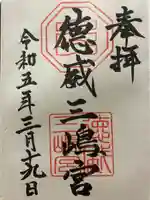 奉拝
徳威三嶋宮
令和五年三月十九日